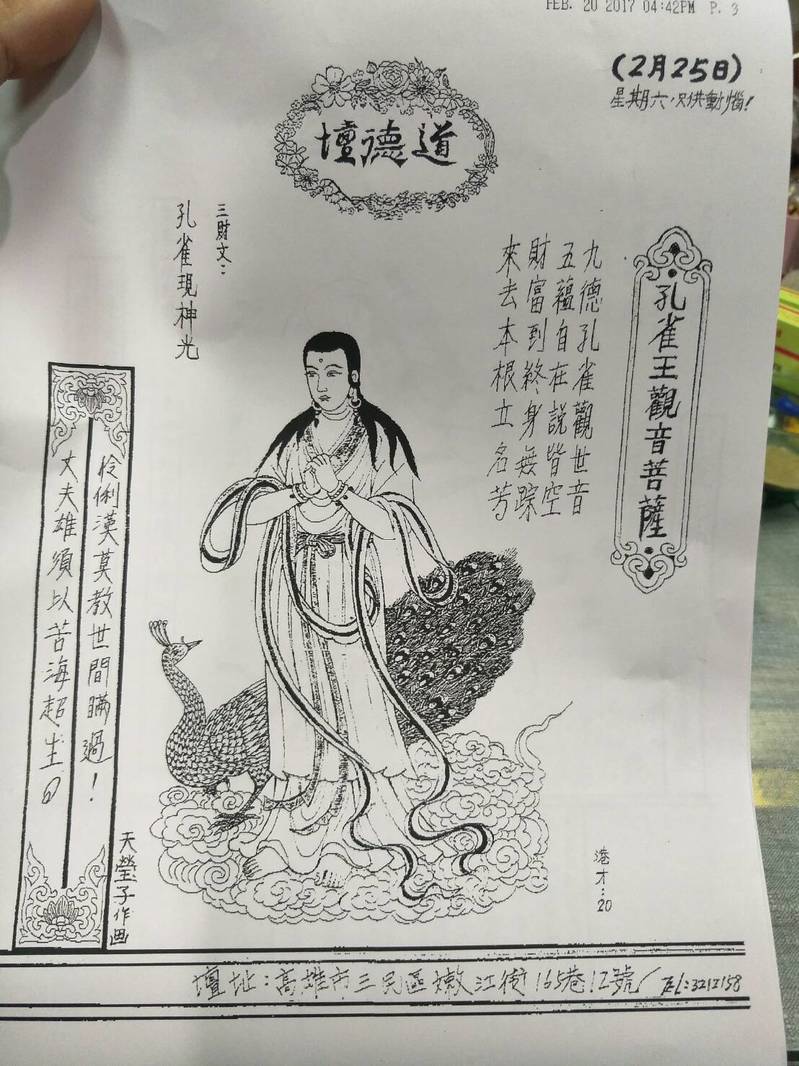 FEB. 20 2017 04:42PM P. 3
(2月25日)
星期六,只供動惱!
道德壇
孔雀王觀音菩薩
九德孔雀觀世音
五蘊自在説皆空
財富到終身無踪
來去本根立名芳
三財文:
孔雀現神光
伶俐漢莫教世間瞞過!
丈夫雄須以苦海超生。
天瑩子作画
港才:20
壇址:高雄市三民區嫩江街165巷12號
TEL:3212158